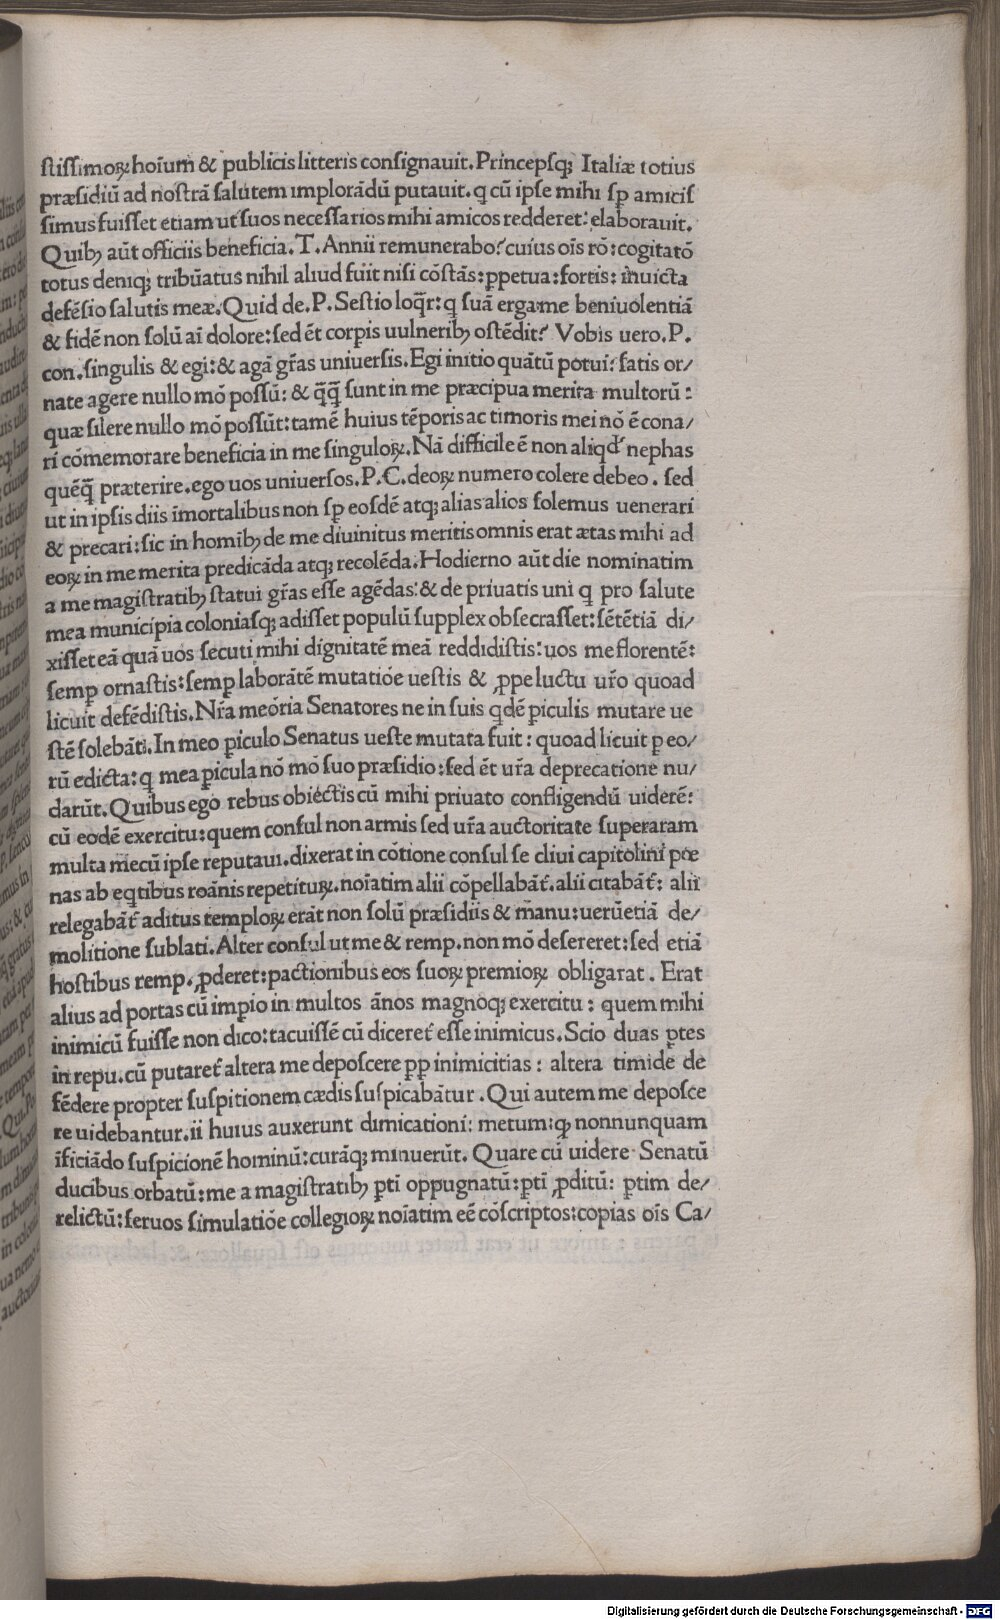 ſtiſſimoꝝ hoīum & publicis litteris conſignauit. Princepſqꝫ Italiæ totius
præſidiū ad noſtrā ſalutem implorādū putauit. q cū ipſe mihi ſꝑ amiciſ
ſimus fuiſſet etiam ut ſuos neceſſarios mihi amicos redderet: elaborauit.
Quibꝫ aūt officiis beneficia. T. Annii remunerabo? cuius oīs rō: cogitatō
totus deniqꝫ tribūatus nihil aliud fuit niſi cōſtās: ꝑpetua: fortis: inuicta
defēſio ſalutis meæ. Quid de. P. Seſtio loq̄r: q ſuā erga me beniuolentiā
& fidē non ſolū aī dolore: ſed ēt corꝑis uulneribꝫ oſtēdit? Vobis uero. P.
con. ſingulis & egi: & agā gr̄as uniuerſis. Egi initio quātū potui: ſatis or/
nate agere nullo mō poſſū: & q̄q̄ ſunt in me præcipua merita multorū:
quæ ſilere nullo mō poſſūt: tamē huius tēporis ac timoris mei nō ē cona/
ri cōmemorare beneficia in me ſinguloꝝ. Nā difficile ē non aliqd' nephas
quēq̄ præterire. ego uos uniuerſos. P. C. deoꝝ numero colere debeo. ſed
ut in ipſis diis īmortalibus non ſꝑ eoſdē atqꝫ alias alios ſolemus uenerari
& precari: ſic in homībꝫ de me diuinitus meritis omnis erat ætas mihi ad
eoꝝ in me merita predicāda atqꝫ recolēda. Hodierno aūt die nominatim
a me magiſtratibꝫ ſtatui gr̄as eſſe agēdas: & de priuatis uni q pro ſalute
mea municipia coloniaſqꝫ adiſſet populū ſupplex obſecraſſet: ſētētiā di/
xiſſet eā quā uos ſecuti mihi dignitatē meā reddidiſtis: uos me florentē:
ſemꝑ ornaſtis: ſemꝑ laborātē mutatiōe ueſtis & ꝓpe luctu ur̄o quoad
licuit defēdiſtis. Nr̄a meōria Senatores ne in ſuis qdē ꝑiculis mutare ue
ſtē ſolebāt. In meo ꝑiculo Senatus ueſte mutata fuit: quoad licuit ꝑ eo/
rū edicta: q mea ꝑicula nō mō ſuo præſidio: ſed ēt ur̄a deprecatione nu/
darūt. Quibus ego rebus obiectis cū mihi priuato confligendū uiderē:
cū eodē exercitu: quem conſul non armis ſed ur̄a auctoritate ſuperaram
multa mecū ipſe reputaui. dixerat in cōtione conſul ſe cliui capitolini pœ
nas ab eqtibus roānis repetiturꝝ. noīatim alii cōpellabāt̄. alii citabāt̄: alii
relegabāt̄ aditus temploꝝ erāt non ſolū præſidiis & manu: uerūetiā de/
molitione ſublati. Alter conſul ut me & remp. non mō deſereret: ſed etiā
hoſtibus remp. ꝓderet: pactionibus eos ſuoꝝ premioꝝ obligarat. Erat
alius ad portas cū impio in multos ānos magnoqꝫ exercitu: quem mihi
inimicū fuiſſe non dico: tacuiſſē cū diceret̄ eſſe inimicus. Scio duas ꝑtes
in repu. cū putaret̄ altera me depoſcere ꝑp inimicitias: altera timide de
fēdere propter ſuſpitionem cædis ſuſpicabātur. Qui autem me depoſce
re uidebantur. ii huius auxerunt dimicationi: metum: qꝫ nonnunquam
īficiādo ſuſpicionē hominū: curāqꝫ minuerūt. Quare cū uidere Senatū
ducibus orbatū: me a magiſtratibꝫ ꝑti oppugnatū: ꝑti ꝓditū: ꝑtim de/
relictū: ſeruos ſimulatiōe collegioꝝ noīatim eē cōſcriptos: copias oīs Ca/
Digitalisierung gefördert durch die Deutsche Forschungsgemeinschaft - DFG